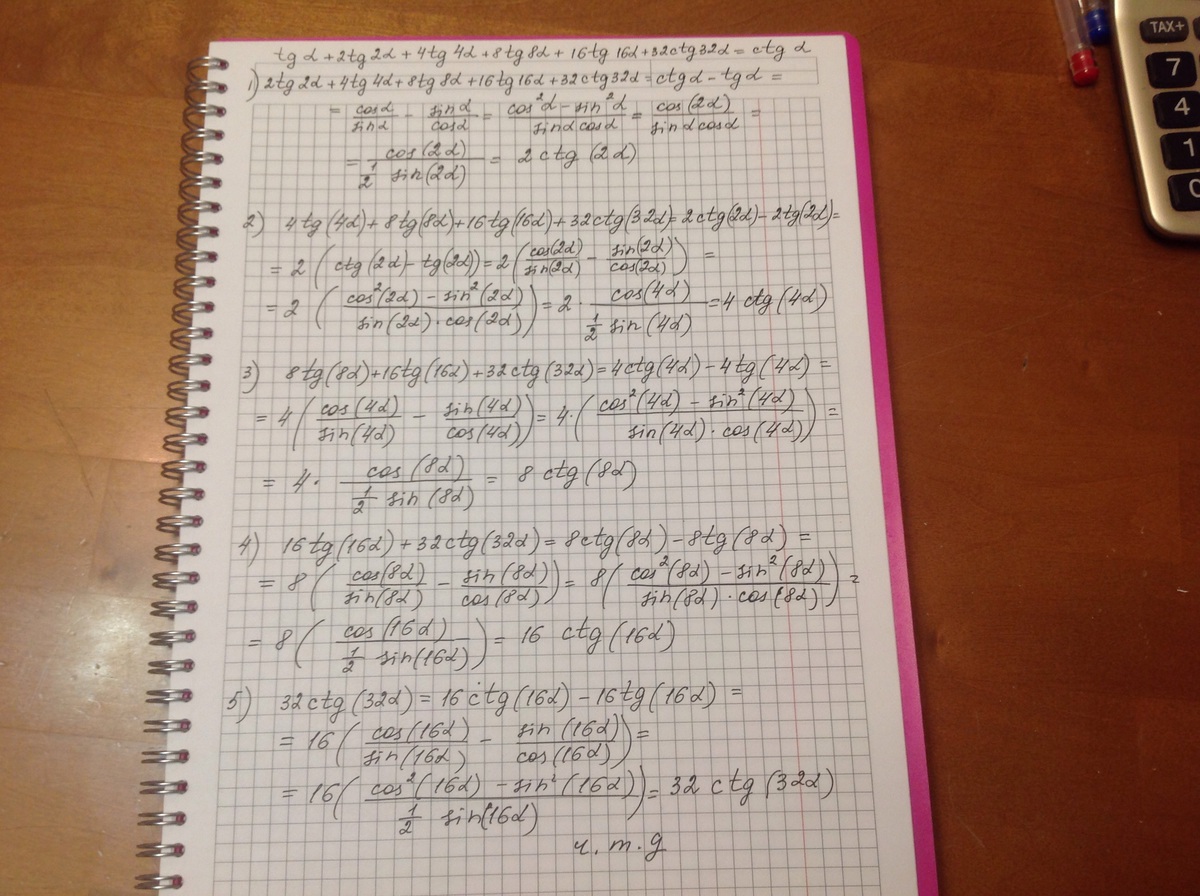 tg α + 2tg 2α + 4tg 4α + 8tg 8α + 16tg 16α + 32ctg 32α = ctg α
1) 2tg 2α + 4tg 4α + 8tg 8α + 16tg 16α + 32ctg 32α = ctg α - tg α =
= cosα/sinα - sinα/cosα = (cos²α - sin²α)/(sinα cosα) = cos(2α)/(sinα cosα) =
= cos(2α)/(1/2 sin(2α)) = 2 ctg (2α)
2) 4tg(4α) + 8tg(8α) + 16tg(16α) + 32ctg(32α) = 2ctg(2α) - 2tg(2α) =
= 2 (ctg(2α) - tg(2α)) = 2 (cos(2α)/sin(2α) - sin(2α)/cos(2α)) =
= 2 ((cos²(2α) - sin²(2α))/(sin(2α)·cos(2α))) = 2 · cos(4α)/(1/2 sin(4α)) = 4 ctg(4α)
3) 8tg(8α) + 16tg(16α) + 32ctg(32α) = 4ctg(4α) - 4tg(4α) =
= 4 (cos(4α)/sin(4α) - sin(4α)/cos(4α)) = 4·((cos²(4α) - sin²(4α))/(sin(4α)·cos(4α))) =
= 4· cos(8α)/(1/2 sin(8α)) = 8 ctg(8α)
4) 16tg(16α) + 32ctg(32α) = 8ctg(8α) - 8tg(8α) =
= 8 (cos(8α)/sin(8α) - sin(8α)/cos(8α)) = 8((cos²(8α) - sin²(8α))/(sin(8α)·cos(8α))) =
= 8 (cos(16α)/(1/2 sin(16α))) = 16 ctg(16α)
5) 32ctg(32α) = 16ctg(16α) - 16tg(16α) =
= 16 (cos(16α)/sin(16α) - sin(16α)/cos(16α)) =
= 16((cos²(16α) - sin²(16α))/(1/2 sin(16α))) = 32 ctg(32α)
ч.т.д
TAX+
7
4
1
0